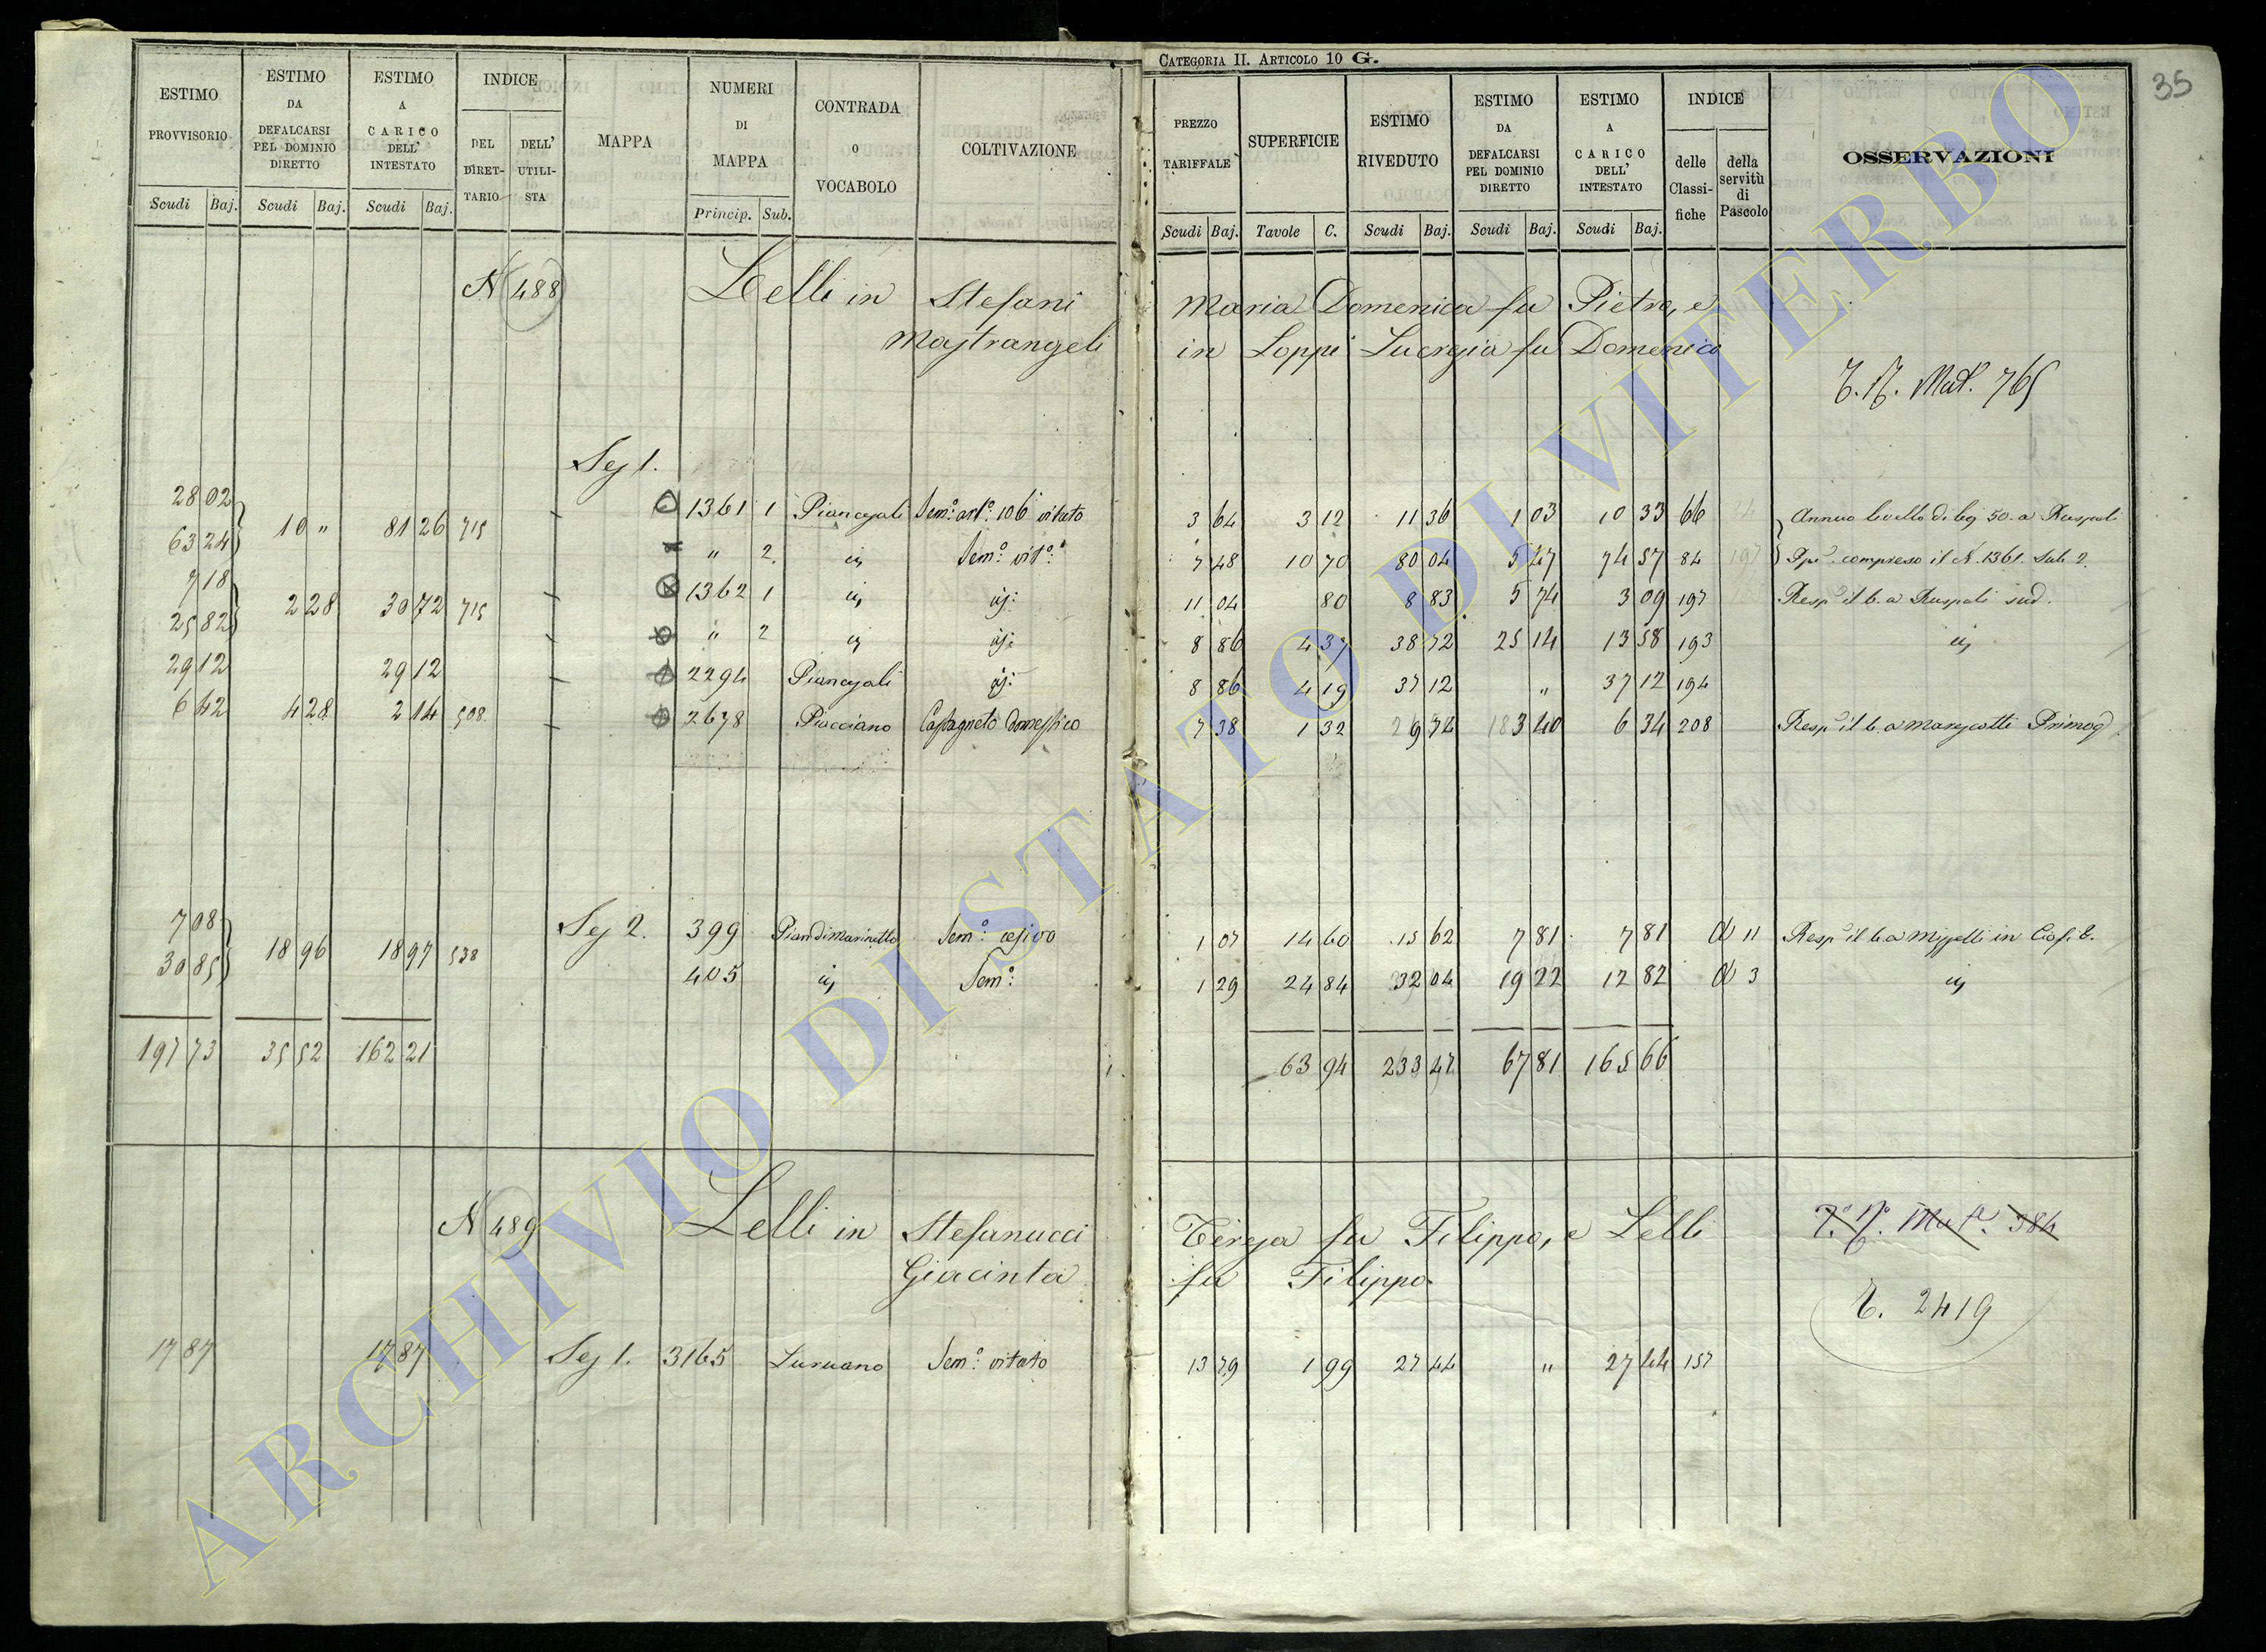 CATEGORIA II. ARTICOLO 10 G.
35
ESTIMO PROVVISORIO Scudi Baj.
ESTIMO DA DEFALCARSI PEL DOMINIO DIRETTO Scudi Baj.
ESTIMO A CARICO DELL' INTESTATO Scudi Baj.
INDICE DEL DIRETTARIO DELL' UTILISTA
MAPPA
NUMERI DI MAPPA Princip. Sub.
CONTRADA O VOCABOLO
COLTIVAZIONE
PREZZO TARIFFALE Scudi Baj.
SUPERFICIE Tavole C.
ESTIMO RIVEDUTO Scudi Baj.
ESTIMO DA DEFALCARSI PEL DOMINIO DIRETTO Scudi Baj.
ESTIMO A CARICO DELL' INTESTATO Scudi Baj.
INDICE delle Classifiche della servitù di Pascolo
OSSERVAZIONI
N 488 Lelli in Stefani Maria Domenica fu Pietro, e
Mastrangeli in Loppi Lucrezia fu Domenico
Mut. 765
Sez 1.
28 02 1361 1 Sem.º art.º 106 vitato 3 64 3 12 11 36 1 03 10 33 66 Annuo livello di 50. a Ruspoli
63 24 10 " 81 26 715 " 2 Sem.º vit.º 7 48 10 70 80 04 5 47 74 57 84 compreso il N. 1361. Sub 2.
7 18 1362 1 11 04 80 8 83 5 74 3 09 197 Resp. il b. a Ruspoli sud.
25 82 2 28 30 72 715 " 2 8 86 4 37 38 72 25 14 13 58 193
29 12 29 12 2294 8 86 4 19 37 12 " 37 12 194
6 42 4 28 2 14 508 2678 Pucciano Castagneto Domestico 7 38 1 32 9 74 3 40 6 34 208 Resp. il b. a Marescotti Primog
7 08 Sez 2. 399 Piandimarinetto Sem.º cesivo 1 07 14 60 15 62 7 81 7 81 11 Resp. il b. a
30 85 18 96 18 97 538 405 Sem.º 1 29 24 84 32 04 19 22 12 82 3
197 73 35 52 162 21 63 94 233 47 67 81 165 66
N 489 Lelli in Stefanucci Teresa fu Filippo, e Lelli
Giacinta fu Filippo
384
2419
17 87 17 87 Sez 1. 3165 Sem.º vitato 13 79 1 99 27 44 " 27 44 157
ARCHIVIO DI STATO DI VITERBO